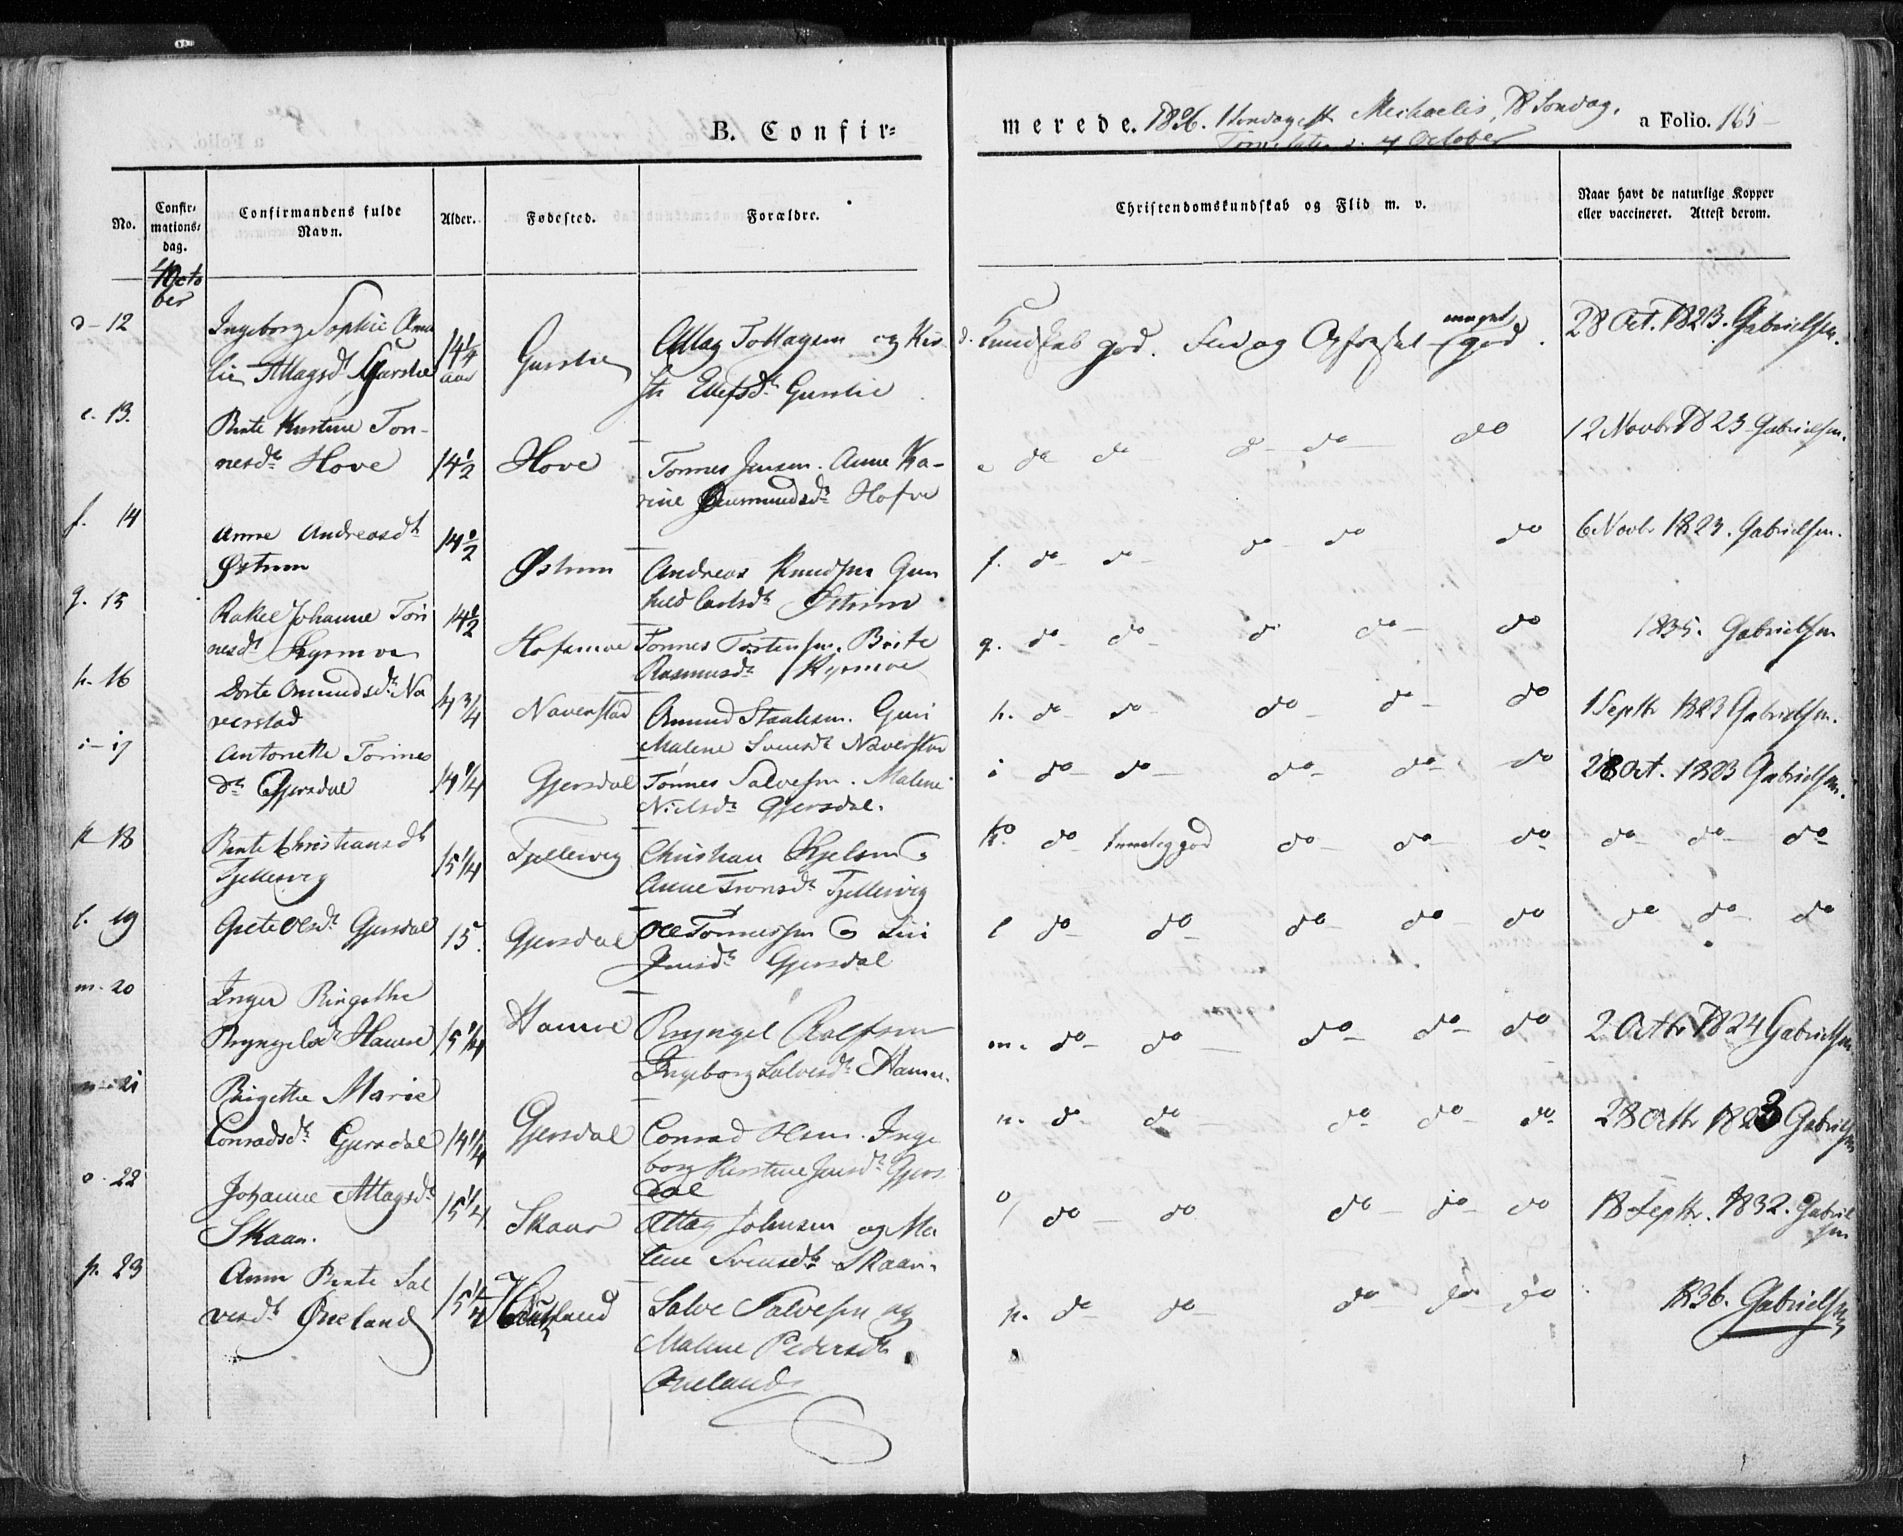 B. Confir=
merede. 1836. 1 Søndag eft Michaelis, 18 Søndag.
4 October
a Folio. 165
No.
Confir=
mations=
dag.
Confirmandens fulde
Navn.
Alder.
Fødested.
Forældre.
Christendomskundskab og Flid m. v.
Naar havt de naturlige Kopper
eller vaccineret. Attest derom.
4 Octo
ber
d - 12
Ingeborg Sophie Ama
lie Attagsdr
14 1/4
aar
Kundskab god. Flid og Opførsel meget god.
28 Oct. 1823. Gabrielsen.
Ellefsdr
e. 13.
Berte Kirstine Ton-
nesdr Hove
14 1/2
Hove
Tonnes Jensen. Anne Ka-
rine
e do do do do do
12 Novbr 1823 Gabrielsen.
f. 14
Anne Andreasdr
14 1/2
Andreas Knudsen Gun
hild Carlsdr
f. do do do do do
6 Novbr 1823. Gabrielsen.
g. 15
Rakel Johanne Ton
nesdr
14 1/2
Tonnes Torstensen. Berte
Rasmusdr
g. do do do do do
1835. Gabrielsen
h. 16
Dorte Amundsdr Na
verstad
14 3/4
Naverstad
Amund Staalesen. Guri
Malene Svensdr Naverstad
h. do do do do do
1 Septbr 1823 Gabrielsen.
i - 17
Antonette Tonnes
dr Gjersdal
14 1/4
Gjersdal
Tonnes Salvesen. Malene
Nielsdr Gjersdal.
i do do do do do
28 Oct. 1823 Gabrielsen.
k - 18
Berte Christiansdr
Fjellesvig
15 1/4
Fjellesvig
Christian
Anne Tronsdr Fjellesvig
k. do temelig god do do do
do do do
l. 19
Grete Olsdr Gjersdal
15.
Gjersdal
Ole Tonnessen & Siri
Jensdr Gjersdal
l do do do do do
do do do
m. 20
Inger Birgithe
Bryngelsdr
15 1/4
Bryngel Rolfsen
Ingeborg Salvesdr
m. do do do do do
2 Octbr 1824 Gabrielsen
n - 21
Birgethe Marie
Conradsdr Gjersdal
14 1/4
Gjersdal
Conrad Olsen. Inge
borg Kirstine Jensdr Gjers
dal
n. do do do do do
28 Octbr 1823 Gabrielsen
o. 22
Johanne Attagsdr
Skaar.
15 1/4
Skaar
Attag Johnsen og Ma
lene Svensdr Skaar.
o/ do do do do do
18 Septbr. 1832. Gabriel
sen
p. 23
Ane Berte Sal
vesdr
15 1/4
Salve Salvesen og
Malene Pedersdr
p. do do do do do
1836. Gabrielsen